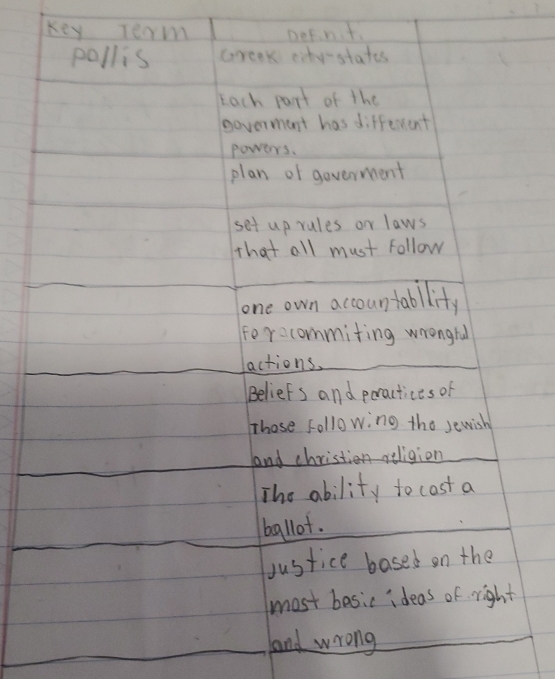 Key Term Definit.
pollis Greek city-states
Each part of the
goverment has different
powers.
plan of goverment
set up rules or laws
that all must follow
one own accountability
for commiting wrongful
actions.
Beliefs and practices of
Those following the Jewish
and christian religion
The ability to cast a
ballot.
Justice based on the
most basic ideas of right
and wrong